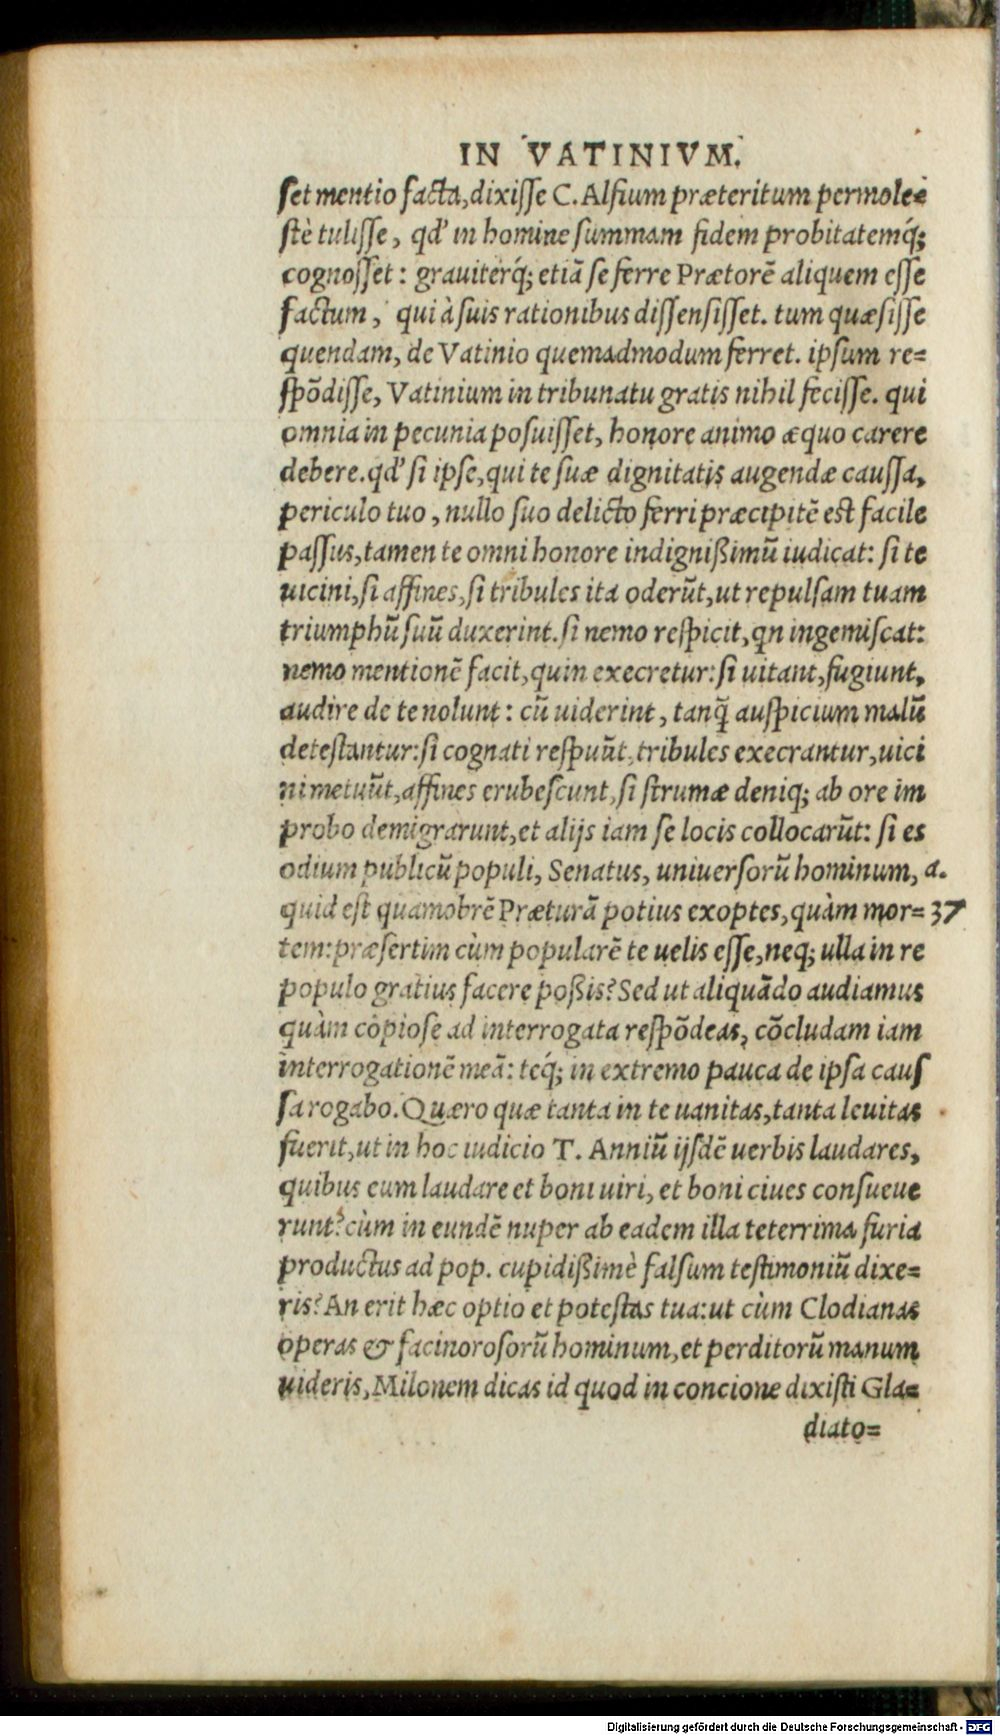 IN VATINIVM.
set mentio facta, dixisse C. Alfium præteritum permole=
stè tulisse, qd' in homine summam fidem probitatemq́;
cognosset: grauiterq́; etiā se ferre Prætorē aliquem esse
factum, qui à suis rationibus dissensisset. tum quæsisse
quendam, de Vatinio quemadmodum ferret. ipsum re=
spōdisse, Vatinium in tribunatu gratis nihil fecisse. qui
omnia in pecunia posuisset, honore animo æquo carere
debere. qd' si ipse, qui te suæ dignitatis augendæ caussa,
periculo tuo, nullo suo delicto ferri præcipitē est facile
passus, tamen te omni honore indignißimū iudicat: si te
uicini, si affines, si tribules ita oderūt, ut repulsam tuam
triumphū suū duxerint. si nemo respicit, qn ingemiscat:
nemo mentionē facit, quin execretur: si uitant, fugiunt,
audire de te nolunt: cū uiderint, tanq̄ auspicium malū
detestantur: si cognati respuūt, tribules execrantur, uici
ni metuūt, affines erubescunt, si strumæ deniq; ab ore im
probo demigrarunt, et alijs iam se locis collocarūt: si es
odium publicū populi, Senatus, uniuersorū hominum, a.
quid est quamobrē Præturā potius exoptes, quàm mor= 37
tem: præsertim cùm popularē te uelis esse, neq; ulla in re
populo gratius facere poßis? Sed ut aliquādo audiamus
quàm copiose ad interrogata respōdeas, cōcludam iam
interrogationē meā: teq́; in extremo pauca de ipsa caus
sa rogabo. Quæro quæ tanta in te uanitas, tanta leuitas
fuerit, ut in hoc iudicio T. Anniū ijsdē uerbis laudares,
quibus eum laudare et boni uiri, et boni ciues consueue
runt? cùm in eundē nuper ab eadem illa teterrima furia
productus ad pop. cupidißimè falsum testimoniū dixe=
ris? An erit hæc optio et potestas tua: ut cùm Clodianas
operas & facinorosorū hominum, et perditorū manum
uideris, Milonem dicas id quod in concione dixisti Gla=
diato=
Digitalisierung gefördert durch die Deutsche Forschungsgemeinschaft - DFG